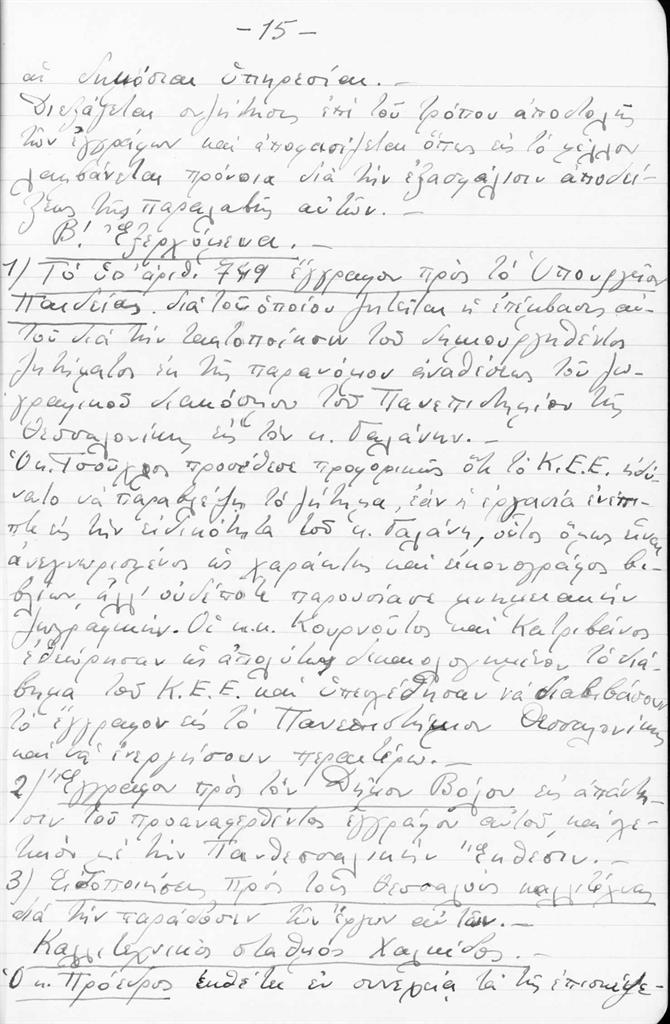 - 15 -
αἱ δημόσιαι ὑπηρεσίαι. –
Διεξάγεται συζήτησις ἐπὶ τοῦ τρόπου ἀποστολῆς
τῶν ἐγγράφων καὶ ἀποφασίζεται ὅπως εἰς τὸ μέλλον
λαμβάνεται πρόνοια διὰ τὴν ἐξασφάλισιν ἀποδεί-
ξεως τῆς παραλαβῆς αὐτῶν. –
Β! Ἐξερχόμενα. –
1) Τὸ ὑπ' ἀριθ. 749 ἔγγραφον πρὸς τὸ Ὑπουργεῖον
Παιδείας. διὰ τοῦ ὁποίου ζητεῖται ἡ ἐπέμβασις αὐ-
τοῦ διὰ τὴν τακτοποίησιν τοῦ δημιουργηθέντος
ζητήματος ἐκ τῆς παρανόμου ἀναθέσεως τοῦ ζω-
γραφικοῦ διακόσμου τοῦ Πανεπιστημίου τῆς
Θεσσαλονίκης εἰς τὸν κ. Γαλάνην. –
Ὁ κ. προσέθεσε προφορικῶς ὅτι τὸ Κ.Ε.Ε. ἠδύ-
νατο νὰ παραβλέψῃ τὸ ζήτημα, ἐὰν ἡ ἐργασία ἐνέπι-
πτε εἰς τὴν εἰδικότητα τοῦ κ. Γαλάνη, οὗτος ὅμως εἶναι
ἀνεγνωρισμένος ὡς χαράκτης καὶ εἰκονογράφος βι-
βλίων, ἀλλ' οὐδέποτε παρουσίασε μνημειακὴν
ζωγραφικήν. Οἱ κ.κ. Κουρνοῦτος καὶ Κατριβάνος
ἐθεώρησαν ὡς ἀπολύτως δικαιολογημένον τὸ διά-
βημα τοῦ Κ.Ε.Ε. καὶ ὑπεσχέθησαν νὰ διαβιβάσουν
τὸ ἔγγραφον εἰς τὸ Πανεπιστήμιον Θεσσαλονίκης
καὶ νὰ ἐνεργήσουν περαιτέρω. –
2) Ἔγγραφον πρὸς τὸν Δῆμον Βόλου εἰς ἀπάντη-
σιν τοῦ προαναφερθέντος ἐγγράφου αὐτοῦ, καὶ σχε-
τικὸν μὲ τὴν Πανθεσσαλικὴν Ἔκθεσιν. –
3) Εἰδοποιήσεις πρὸς τοὺς Θεσσαλοὺς καλλιτέχνας
διὰ τὴν παράδοσιν τῶν ἔργων αὐτῶν. –
Καλλιτεχνικὸς σταθμὸς Χαλκίδος. –
Ὁ κ. Πρόεδρος ἐκθέτει ἐν συνεχείᾳ τὰ τῆς ἐπισκέψε-